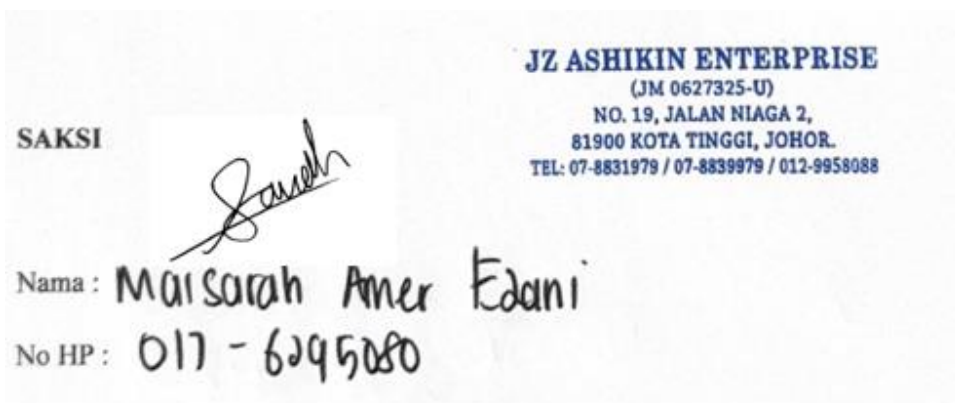 JZ ASHIKIN ENTERPRISE
(JM 0627325-U)
NO. 19, JALAN NIAGA 2,
81900 KOTA TINGGI, JOHOR.
TEL: 07-8831979 / 07-8839979 / 012-9958088
SAKSI
Nama : Maisarah Amer
No HP : 017 -